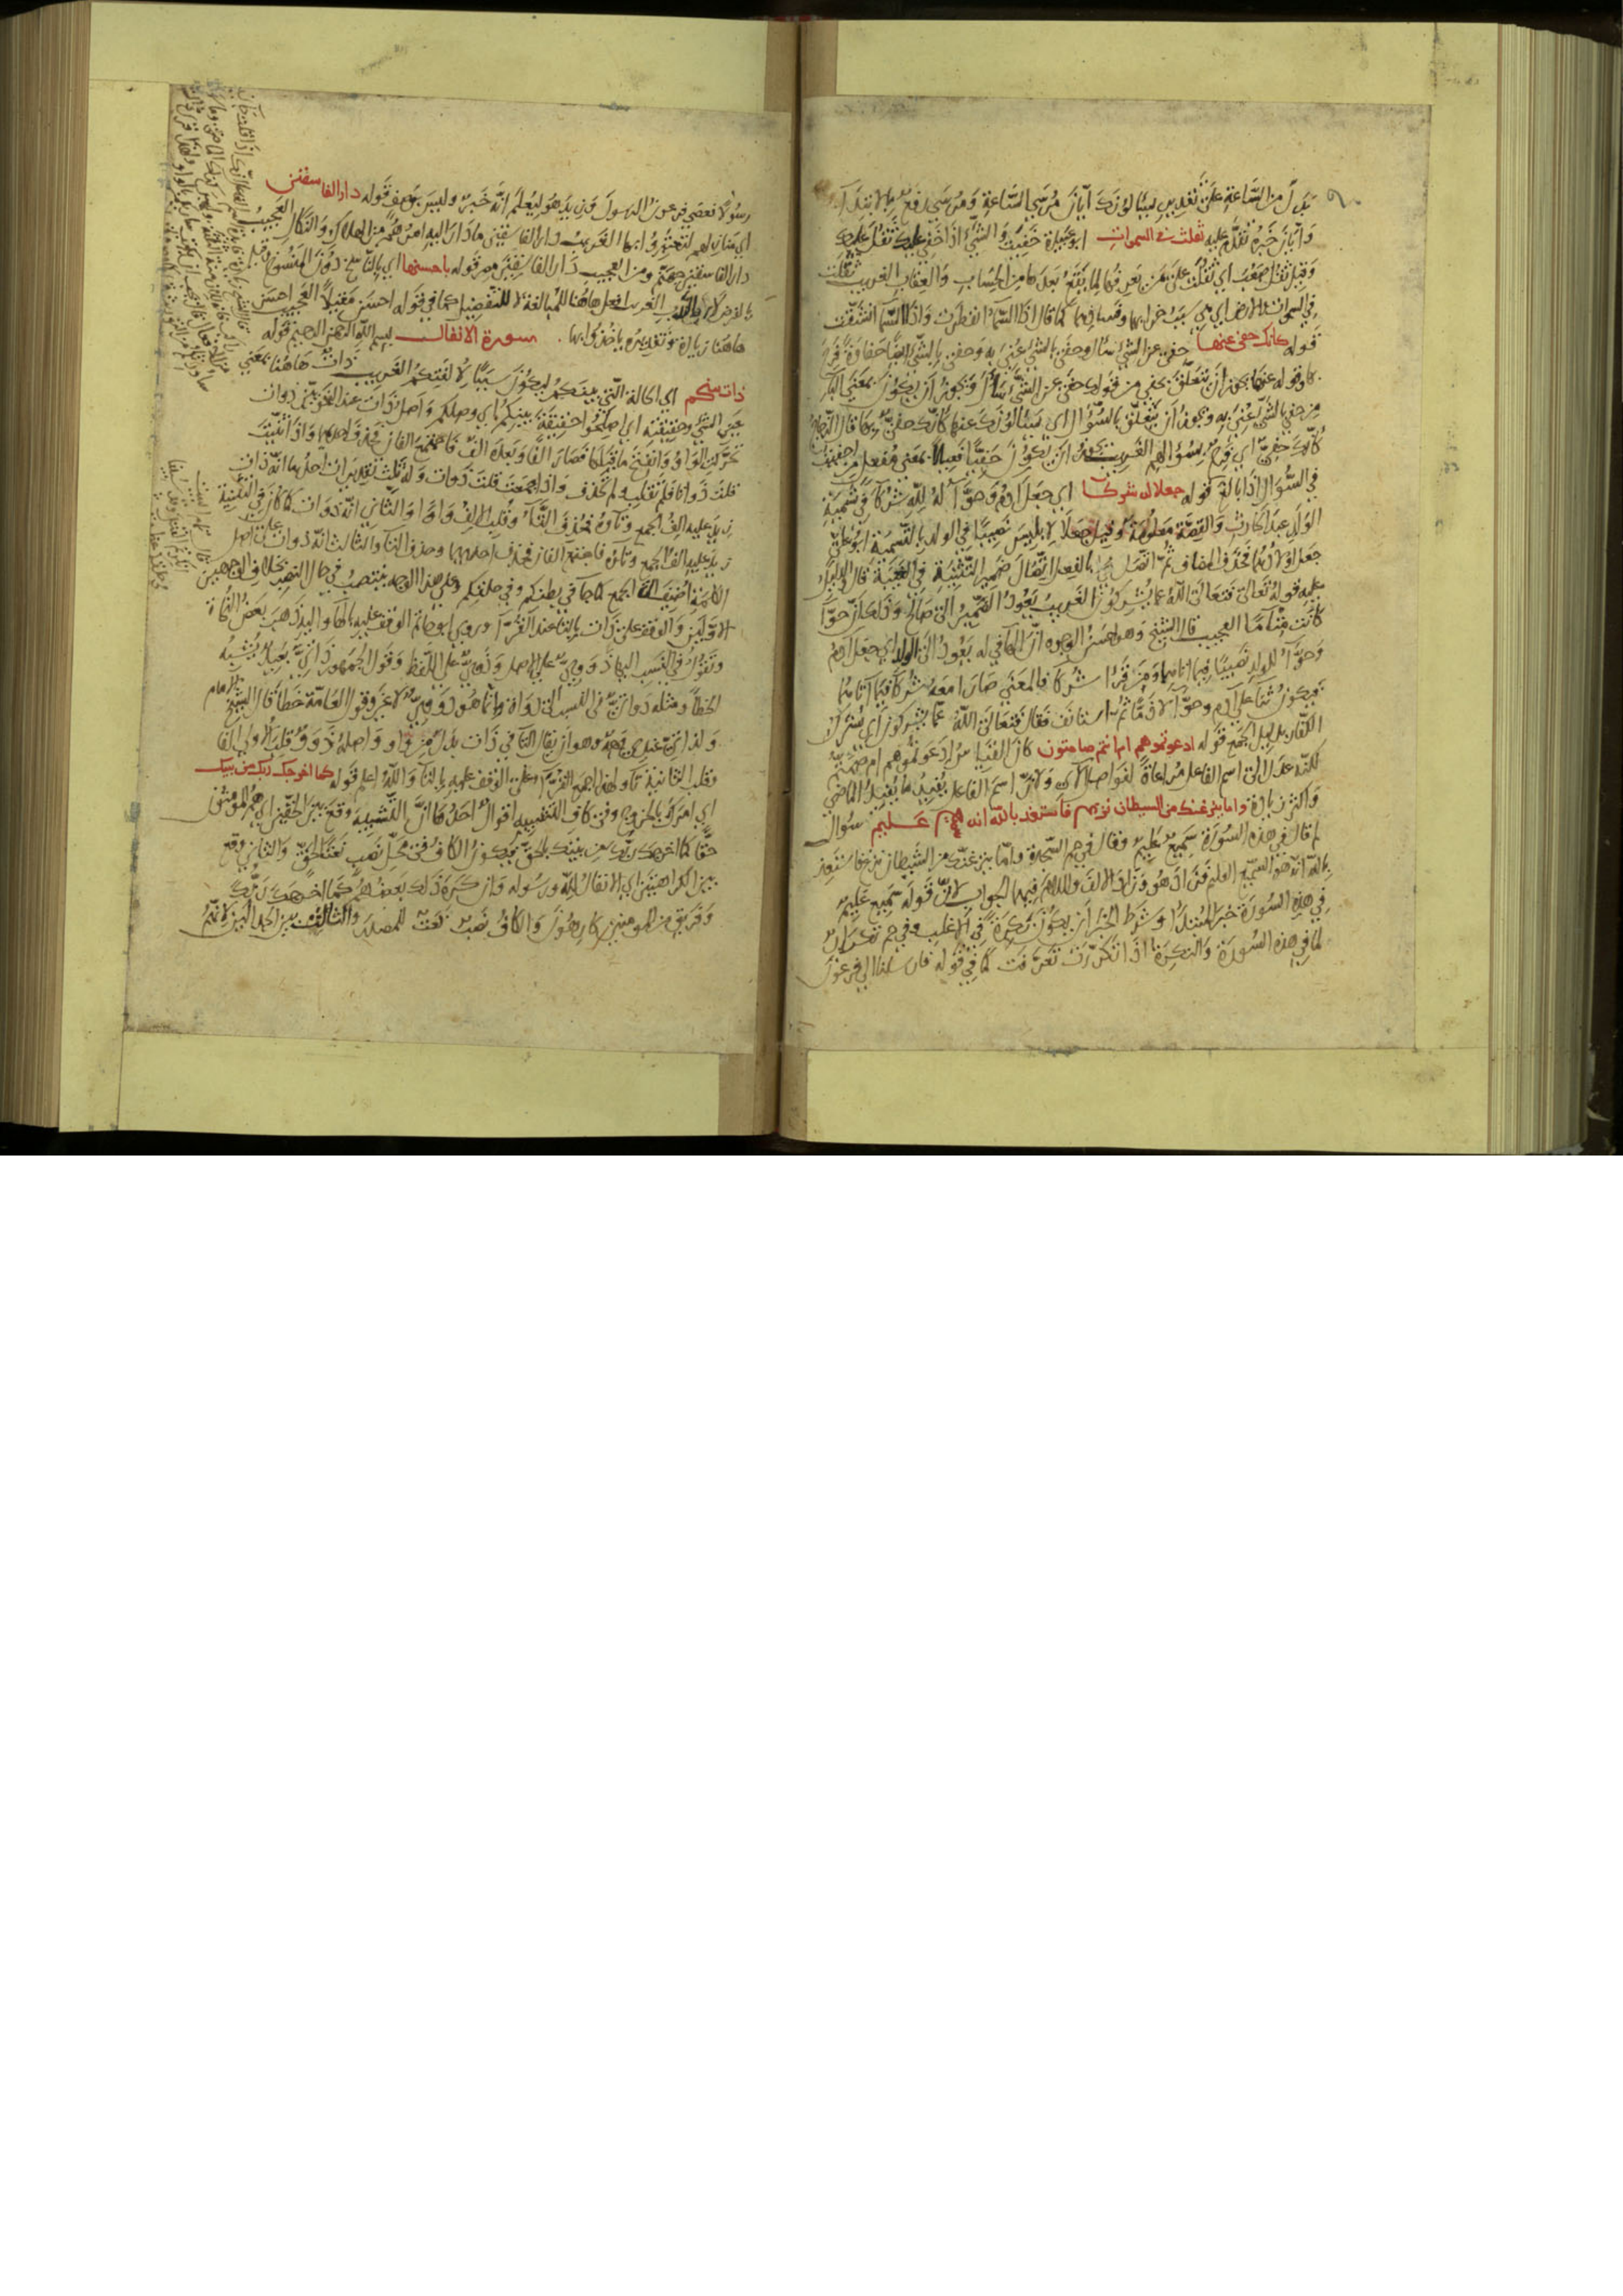 بدل من الساعة على تقدير يسالونك ايان مرسى الساعة ومرسى رفع بالابتدآ
وايان خبره تقدم عليه ثقلت في السموات ابو عبيدة خفيت والشئ اذا خفي عليك ثقل عليك
وقيل ثقل صعب اي ثقلت على من يعرفها لما يقع بعدها من الحساب والعقاب الغريب ثقلت
في السموات والارض اي هي سبب خرابها وفسادهما كما قال اذا السمآ انفطرت واذا السمآ انشقت
قوله كانك حفي عنها حفي عن الشئ سال وحفي بالشئ عني به وحفي بالشئ ايضا حفاوة فرح
وقوله عنها يجوز ان يتعلق بحفي من قولك حفي عن الشئ سال ويجوز ان يكون بمعنى البآ
من حفي بالشئ عني به ويجوز ان يتعلق بالسؤال اي يسالونك عنها كانك حفي بها قال الزجاج
كانك حفي اي فرح بسؤالهم الغريب يجوز ان يكون حفيا فعيلا بمعنى مفعل من احفيت
في السؤال اذا بالغ قوله جعلا له شركآ اي جعل آدم وحوآ له لله شركآ في تسمية
الولد عبد الحارث والقصة معلومة وقيل جعلا لابليس نصيبا في الولد بالتسمية ابو علي
جعل اولادهما فحذف المضاف ثم اتصل بالفعل اتصال ضمير التثنية في الغيبة قال والدليل
عليه قوله تعالى فتعالى الله عما يشركون الغريب يعود الضمير الى صالح وذلك ان حوآ
كانت العجيب قال الشيخ وهو احسن الوجوه ان الهآ في له يعود الى الولد اي جعل آدم
وحوآ للولد نصيبا فيما اتاهما ومن قرا شركا فالمعنى صارا معه شركآ فيما آتاهما
فيكون ثنآ على آدم وحوآ لا ذما ثم استانف فقال فتعالى الله عما يشركون اي يشرك
الكفار بدليل الجمع قوله ادعوتموهم ام انتم صامتون كان القياس ادعوتموهم ام صمتم
لكنه عدل الى اسم الفاعل مراعاة لفواصل الآي ولان اسم الفاعل يفيد ما يفيد الماضي
واكثر زيادة واما ينزغنك من الشيطان نزغ فاستعذ بالله انه سميع عليم سؤال
لم قال في هذه السورة سميع عليم وقال في حم السجدة واما ينزغنك من الشيطان نزغ فاستعذ
بالله انه هو السميع العليم فزاد هو وزاد الالف واللام فيهما الجواب لان قوله سميع عليم
في هذه السورة خبر المبتدا وشرط الخبر ان يكون نكرة في الاغلب وفي حم تكرار
لما في هذه السورة والنكرة اذا تكررت تعرفت كما في قوله فارسلنا الى فرعون
رسولا فعصى فرعون الرسول وزيد هو ليعلم انه خبر وليس بوصف قوله دار الفاسقين
اي منازلهم لتعتبروا بها الغريب دار الفاسقين ما دار اليه امرهم من الهلاك والنكال العجيب
دار الفاسقين جهنم ومن العجيب دار الفاسقين مصر قوله باحسنها اي بالناسخ دون المنسوخ وقيل
بالفرض الغريب افعل هاهنا للمبالغة لا للتفضيل كما في قوله احسن مقيلا العجيب احسن
هاهنا زيادة وتقديره ياخذوا بها. سورة الانفال بسم الله الرحمن الرحيم قوله
ذات بينكم اي الحالة التي بينكم ليكون سببا لالفتكم الغريب ذات هاهنا بمعنى
عين الشئ وحقيقته اي اصلحوا حقيقة بينكم اي وصلكم واصل ذات عند النحويين ذوات
تحركت الواو وانفتح ما قبلها فصار الفا وبعده الف فاجتمع الفان فحذف احدهما واذا ثنيت
قلت ذواتا فلم تقلب ولم تحذف واذا جمعت قلت ذوات وله ثلث تقديرات احدها انه ذات
زيد عليه الف الجمع وتآؤه فحذف التآ وقلب الالف واوا والثاني انه ذوات كما كان في التثنية
زيد عليه الف الجمع وتآؤه فاجتمع الفان فحذف احدهما وحذف التآ والثالث انه ذوات على اصل
الكلمة اضيف الى الجمع كما جآ في بطنكم وفي حلقكم وعلى هذا الوجه ينتصب في حال النصب بخلاف الوجهين
الاولين والوقف على ذات بالتا عند القرآ وروي ابو حاتم الوقف عليه بالهآ واليه ذهب بعض النحاة
وتقول في النسب اليها ذووي على الاصل وذووي على اللفظ وقول الجمهور ذاتي بعيد يشبه
الخطا ومثله دواتي في النسب الى دواة وانما هو دووي لا غير وقول العامة خطا قال الشيخ الامام
ولذاتي عندي وجه وهو ان يقال التا في ذات بدل من واو واصله ذوو قلب الاولى الفا
وقلب الثانية تآ ولهذا اجمع القرآ على الوقف عليه بالتآ والله اعلم قوله كما اخرجك ربك من بيتك
اي امرك بالخروج وفي كاف التشبيه اقوال احدها ان التشبيه وقع بين الحقين اي هم المؤمنون
حقا كما اخرجك ربك من بيتك بالحق فيكون الكاف في محل نصب نعتا لحق والثاني وقع
بين الكراهيتين اي الانفال لله ورسوله وان كره ذلك بعضهم كما اخرجك ربك
وفريق من المومنين كارهون والكاف نصب نعت للمصدر والثالث بين الجدالين لانهم